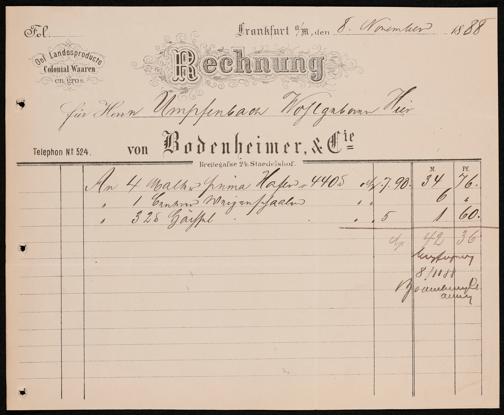 Fol.
Frankfurt a/M, den 8. November 1888
Oel Landesproducte
Colonial Waaren
en gros
Rechnung
für Herrn Umpfenbach Wohlgeboren Hier
Telephon Nº 524.
von Bodenheimer, & Cie
Breitegasse 24. Staedelshof.
M. Pf.
An 4 Malter prima Hafer 440 7.90. 34 76.
" 1 Centner Waizenschaalen 6 "
" 32 " 5 1 60.
42 36
8/11 88